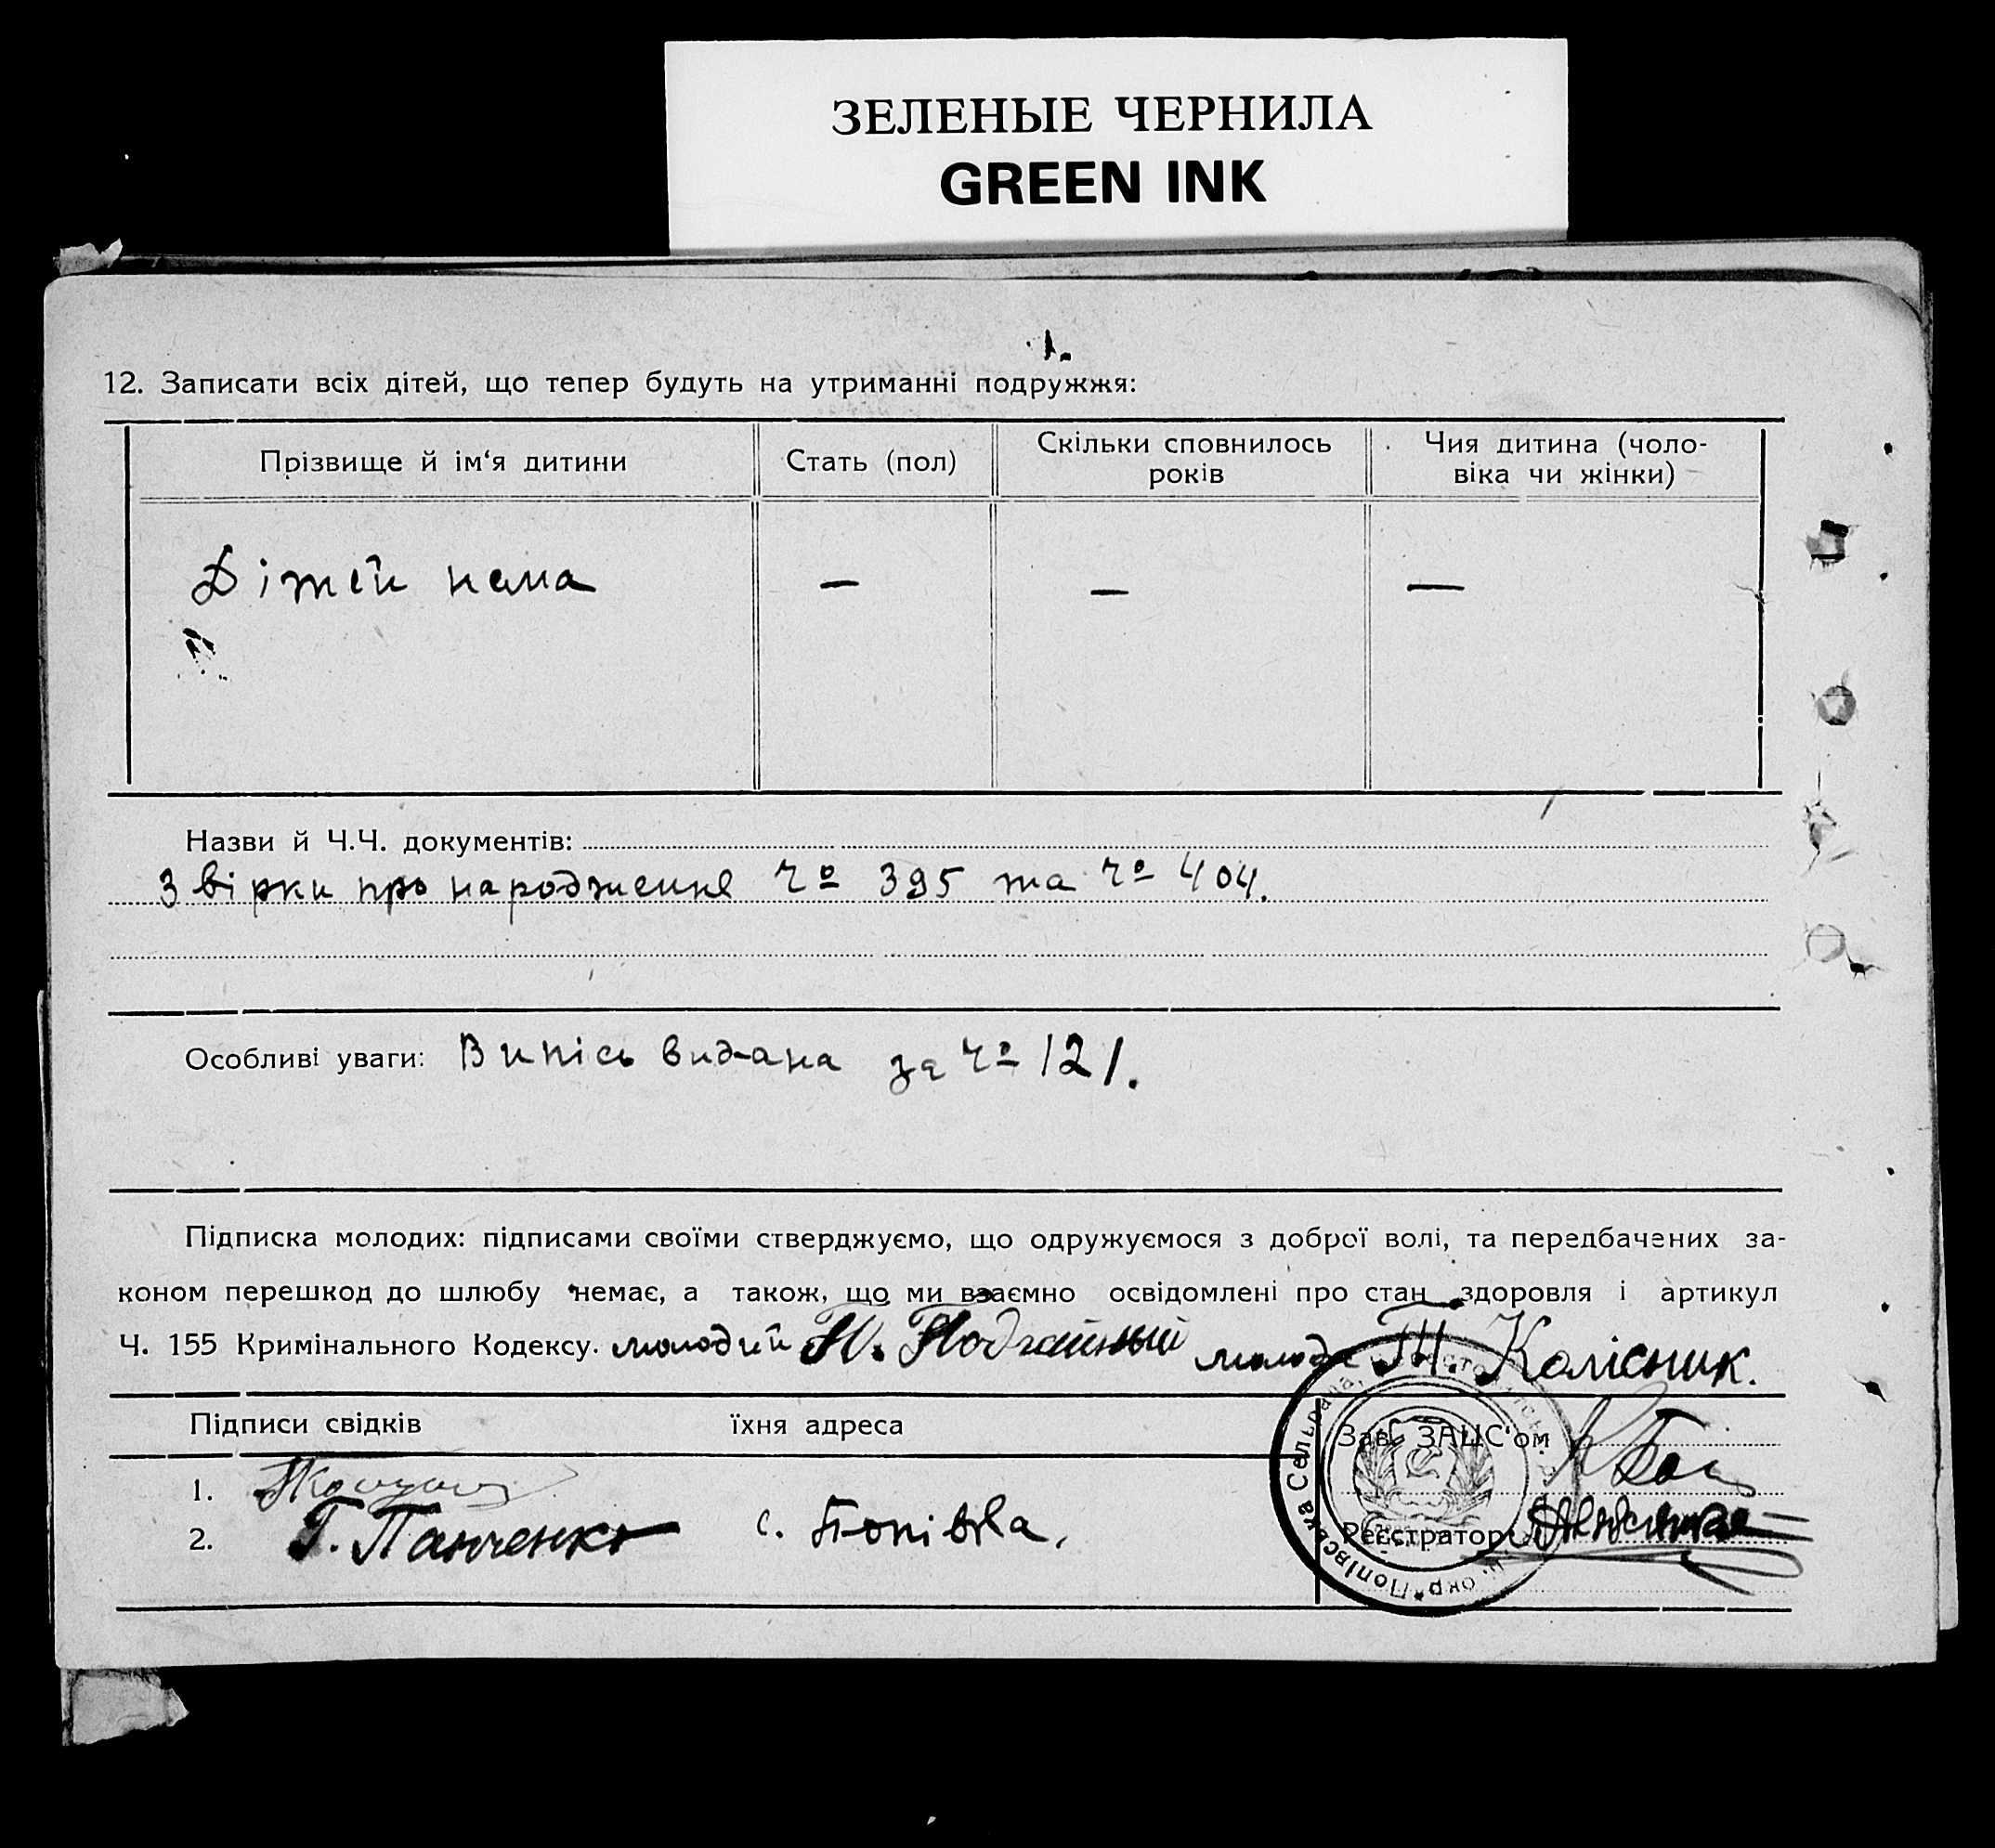 ЗЕЛЕНЫЕ ЧЕРНИЛА
GREEN INK
1.
12. Записати всіх дітей, що тепер будуть на утриманні подружжя:
Прізвище й ім‘я дитини
Стать (пол)
Скільки сповнилось
років
Чия дитина (чоло-
віка чи жінки)
Дітей нема — — —
Назви й Ч.Ч. документів:
Звірки про народження Чо 395 та Чо 404.
Особливі уваги: Випісь видана за Чо 121.
Підписка молодих: підписами своїми стверджуємо, що одружуємося з доброї волі, та передбачених за-
коном перешкод до шлюбу немає, а також, що ми взаємно освідомлені про стан здоровля і артикул
Ч. 155 Кримінального Кодексу. молодий молода Т. Колісник.
Підписи свідків їхня адреса
Зав. ЗАЦС‘ом
1.
2. Г. Панченко с. Попівка,
Реєстратор
Попівська Сельрада, окр.